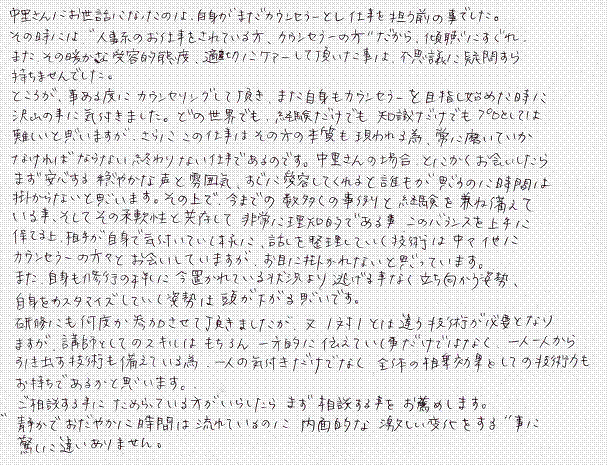 中里さんにお世話になったのは、自身がまだカウンセラーとし仕事を担う前の事でした。
その時には“人事系のお仕事をされている方、カウンセラーの方”だから、傾聴にすぐれ、
また、その暖かな受容的態度、適切にケアーして頂いた事は、不思議に疑問すら
持ちませんでした。
ところが、事ある度にカウンセリングして頂き、また自身もカウンセラーを目指し始めた時に
沢山の事に気付きました。どの世界でも、経験だけでも知識だけでもプロとしては
難しいと思いますが、さらにこの仕事はその方の本質も現われる為、常に磨いていか
なければならない終わりない仕事であるのです。中里さんの場合、とにかくお会いしたら
まず安心する穏やかな声と雰囲気、すぐに受容してくれると誰もが思うのに時間は
掛からないと思います。その上で、今までの数多くの事例と経験を兼ね備えて
いる事、そしてその柔軟性と共存して非常に理知的である事、このバランスを上手に
保てる上、相手が自身で気付いていく様に、話しを整理していく技術は中々他に
カウンセラーの方々とお会いしていますが、お目に掛かれないと思っています。
また、自身も修行の様に今置かれている状況より、逃げる事なく立ち向かう姿勢、
自身をカスタマイズしていく姿勢は頭が下がる思いです。
研修にも何度か参加させて頂きましたが、又1対1とは違う技術が必要となり
ますが、講師としてのスキルはもちろん、一方的に伝えていく事だけではなく、一人一人から
引き出す技術も備えている為、一人の気付きだけでなく全体の相乗効果としての技術力も
お持ちであるかと思います。
ご相談する事にためらっている方がいらしたら、まず相談する事をお薦めします。
“静かでおだやかに時間は流れているのに、内面的な激しい変化をする”事に
驚いに違いありません。